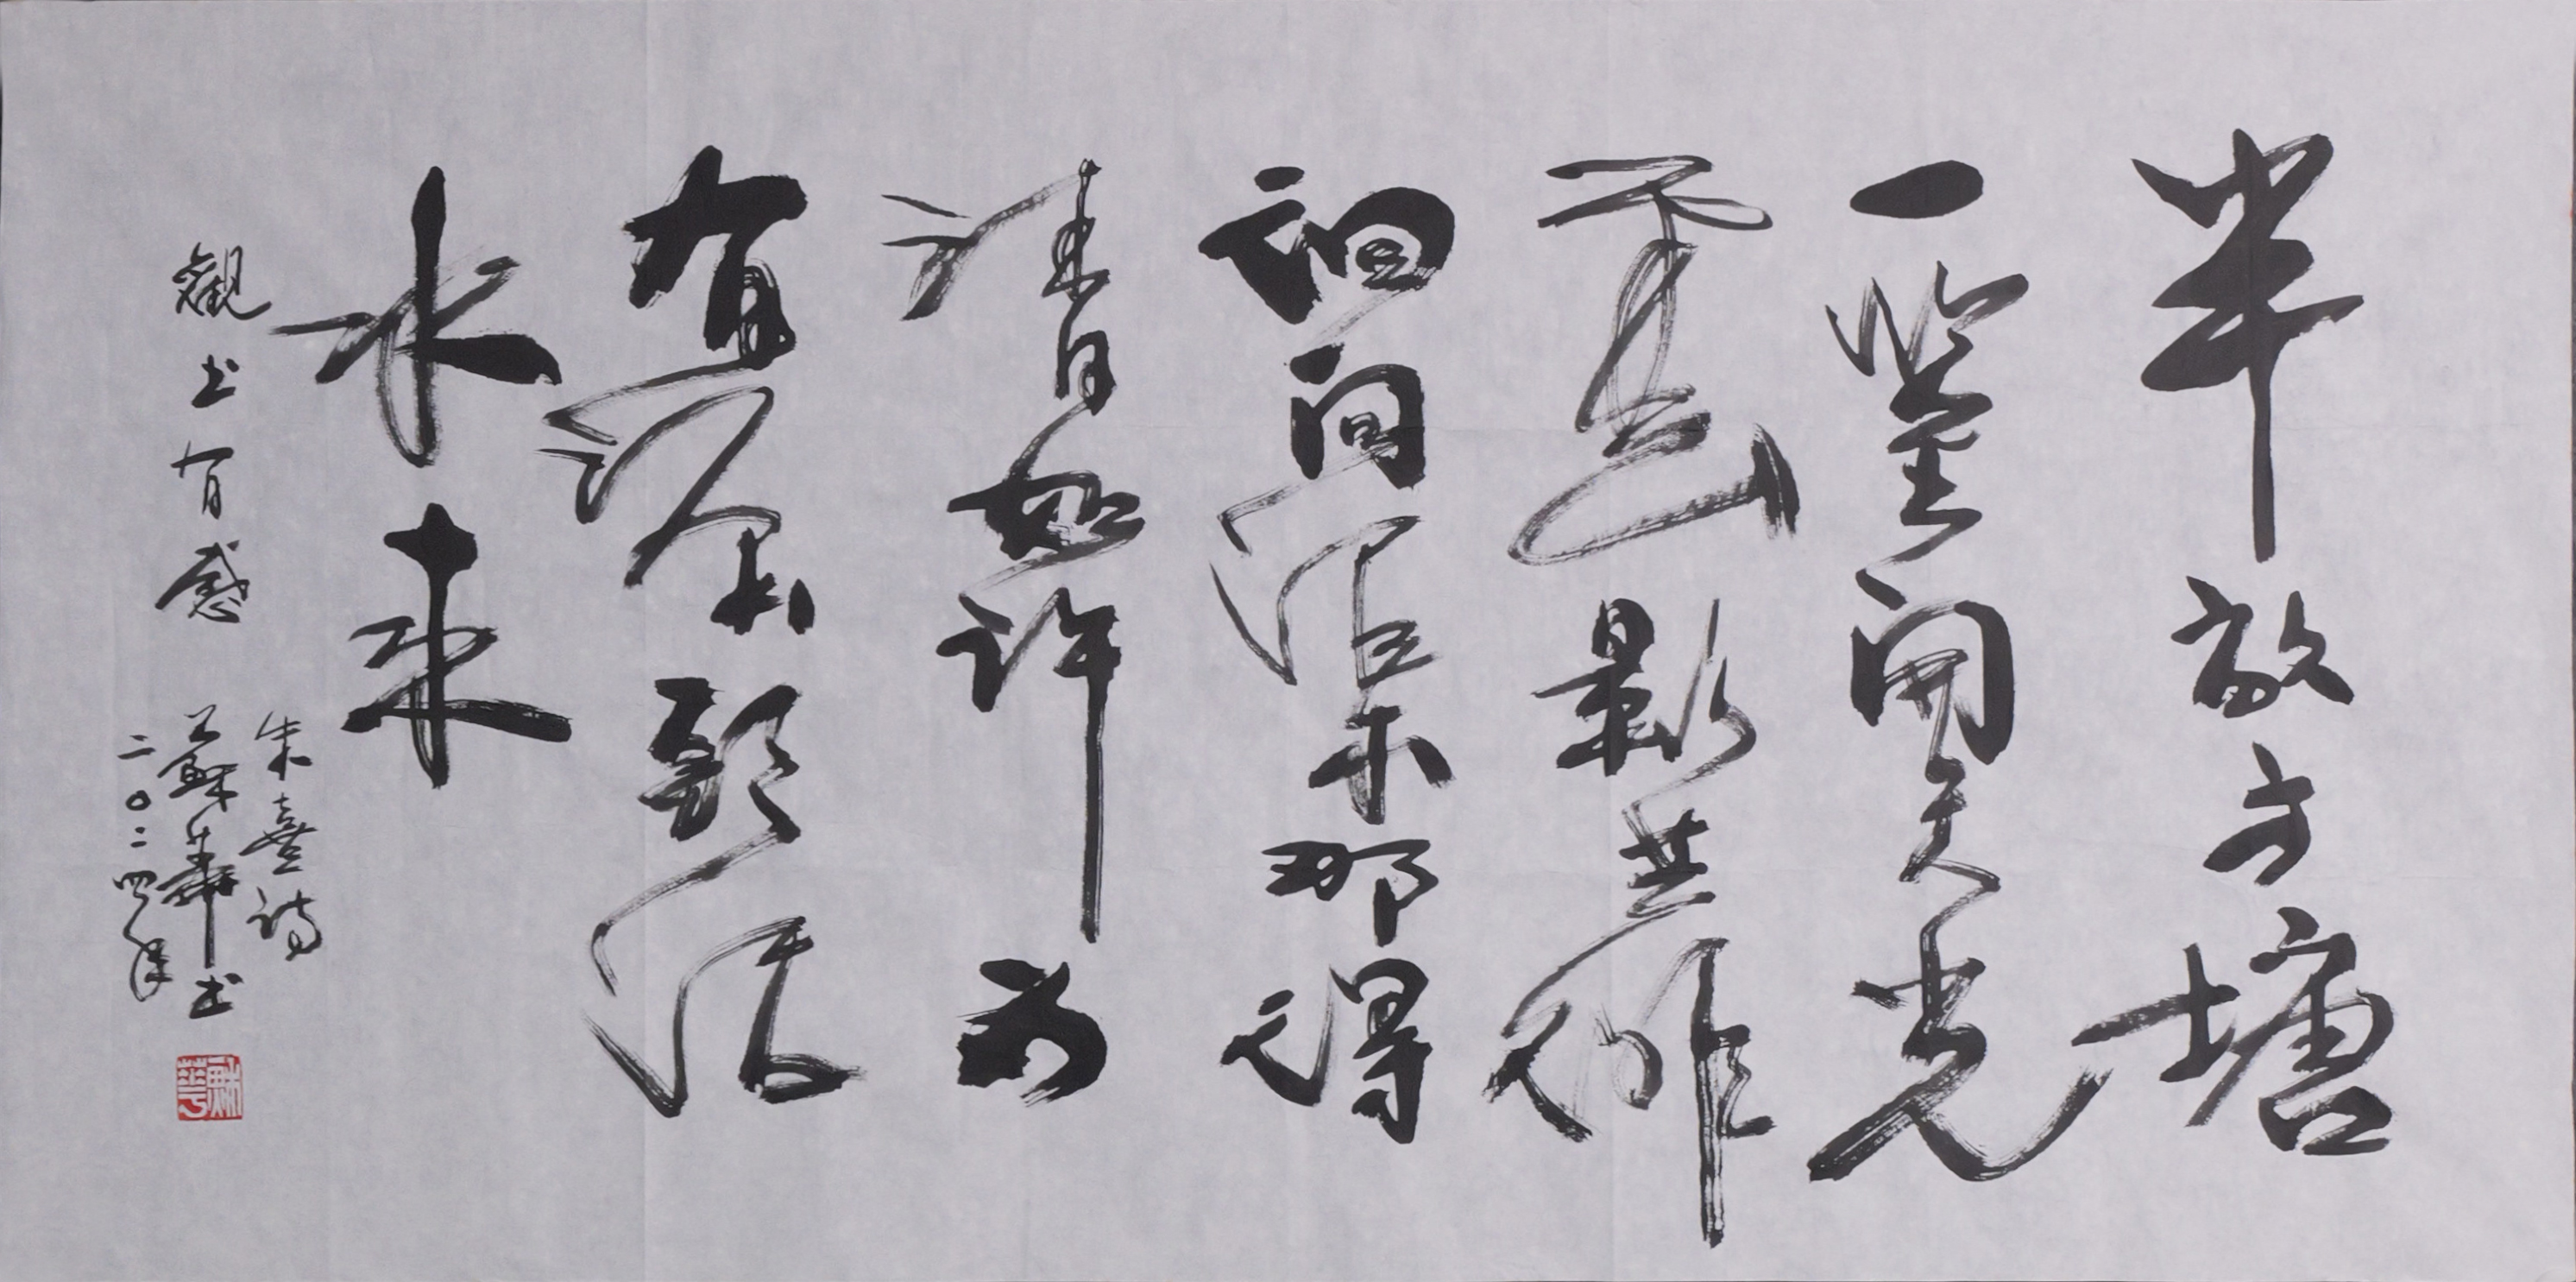 半畝方塘
一鑒開天光
雲影共徘
徊問渠那得
清如許為
有源頭活
水来
觀书有感
朱熹詩
蘇華书
二〇二四年
蘇華